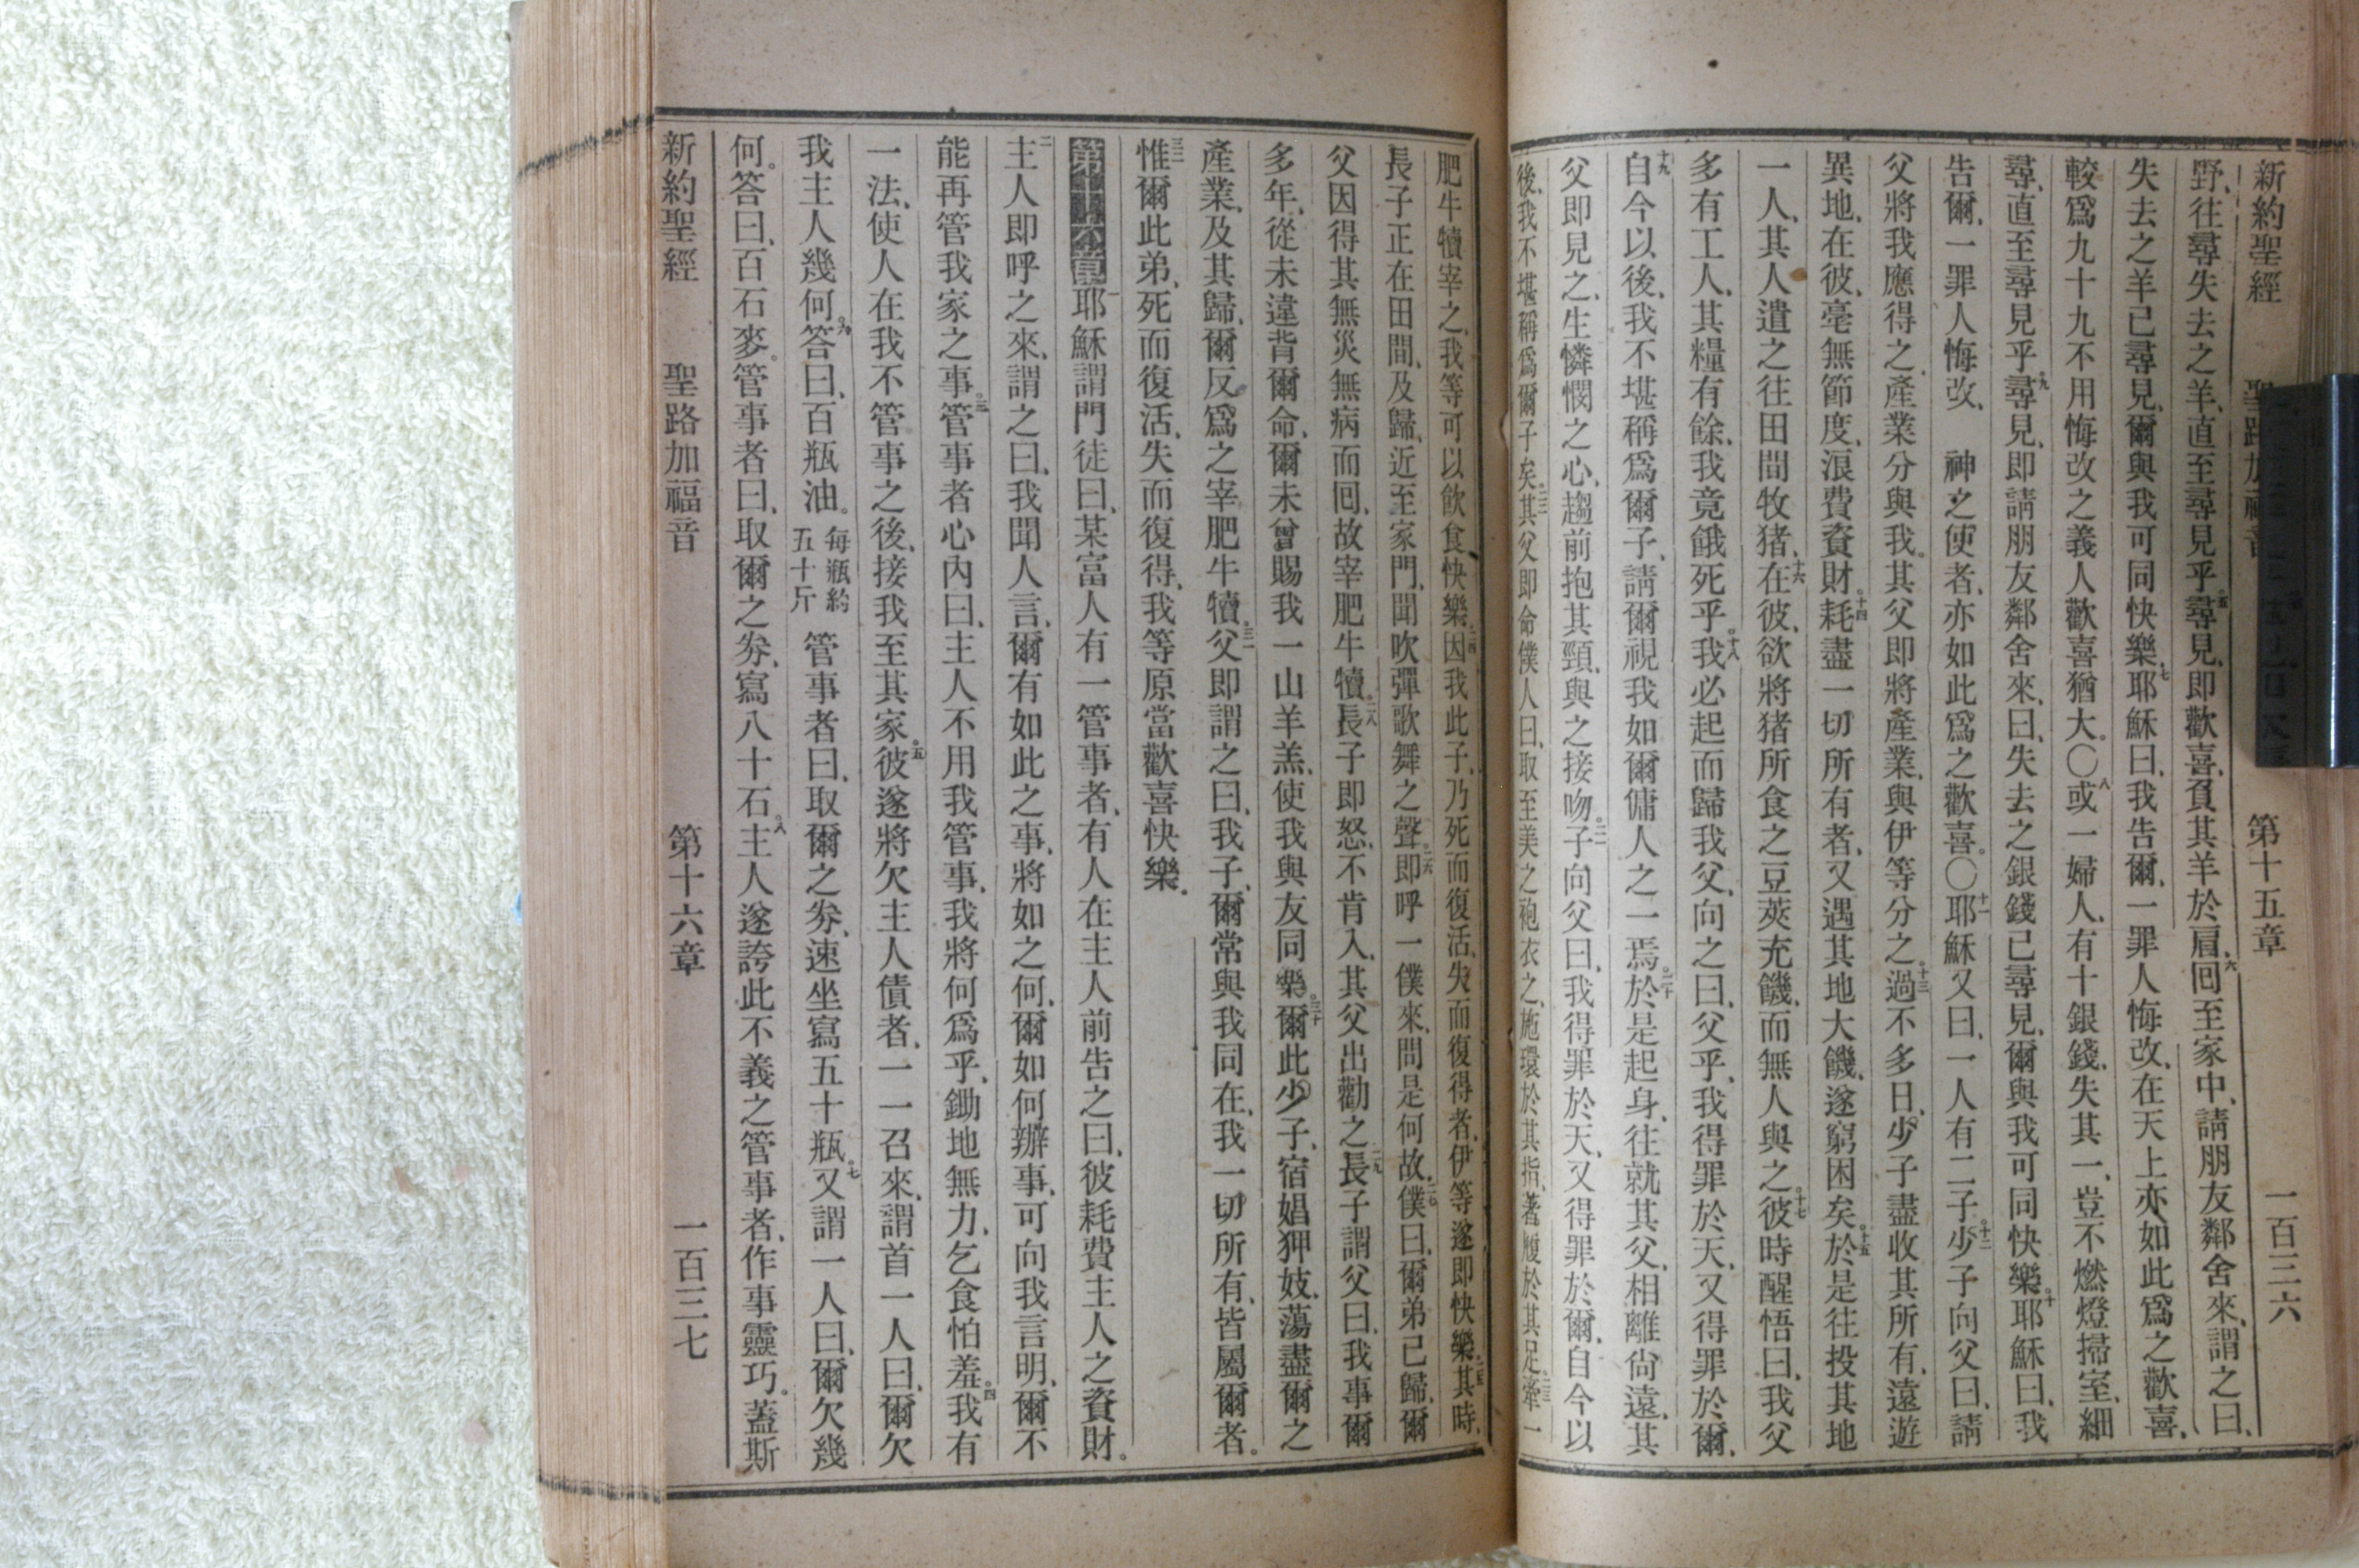 新約聖經 聖路加福音 第十五章 一百三六
野、往尋失去之羊、直至尋見乎。五尋見、卽歡喜、負其羊於肩、六回至家中、請朋友鄰舍來、謂之曰、
失去之羊已尋見、爾與我可同快樂。七耶穌曰、我告爾、一罪人悔改、在天上亦如此爲之歡喜、
較爲九十九不用悔改之義人歡喜猶大。〇八或一婦人、有十銀錢、失其一、豈不燃燈掃室、細
尋、直至尋見乎。九尋見、卽請朋友鄰舍來、曰、失去之銀錢已尋見、爾與我可同快樂。十耶穌曰、我
告爾、一罪人悔改、 神之使者、亦如此爲之歡喜。〇十一耶穌又曰、一人有二子。十二少子向父曰、請
父將我應得之產業分與我。其父卽將產業、與伊等分之。十三過不多日、少子盡收其所有、遠遊
異地、在彼、毫無節度、浪費資財。十四耗盡一切所有者、又遇其地大饑、遂窮困矣。十五於是往投其地
一人、其人遣之往田間牧猪、十六在彼、欲將猪所食之豆莢充饑、而無人與之。十七彼時醒悟曰、我父
多有工人、其糧有餘、我竟餓死乎。十八我必起而歸我父、向之曰、父乎、我得罪於天、又得罪於爾、
十九自今以後、我不堪稱爲爾子、請爾視我如爾傭人之一焉。二十於是起身、往就其父、相離尙遠、其
父卽見之、生憐憫之心、趨前抱其頸、與之接吻。二一子向父曰、我得罪於天、又得罪於爾、自今以
後、我不堪稱爲爾子矣。二二其父卽命僕人曰、取至美之袍衣之、施環於其指、著履於其足。二三牽一
肥牛犢宰之、我等可以飮食快樂。二四因我此子、乃死而復活、失而復得者、伊等遂卽快樂。二五其時、
長子正在田間、及歸、近至家門、聞吹彈歌舞之聲。二六卽呼一僕來、問是何故。二七僕曰、爾弟已歸、爾
父因得其無災無病而回、故宰肥牛犢。二八長子卽怒、不肯入、其父出勸之。二九長子謂父曰、我事爾
多年、從未違背爾命、爾未曾賜我一山羊羔、使我與友同樂。三十爾此少子、宿娼狎妓、蕩盡爾之
產業、及其歸、爾反爲之宰肥牛犢。三一父卽謂之曰、我子、爾常與我同在、我一切所有、皆屬爾者。
三二惟爾此弟、死而復活、失而復得、我等原當歡喜快樂。
第十六章一耶穌謂門徒曰、某富人有一管事者、有人在主人前告之曰、彼耗費主人之資財。
二主人卽呼之來、謂之曰、我聞人言、爾有如此之事、將如之何、爾如何辦事、可向我言明、爾不
能再管我家之事。三管事者心內曰、主人不用我管事、我將何爲乎、鋤地無力、乞食怕羞。四我有
一法、使人在我不管事之後、接我至其家。五彼遂將欠主人債者、一一召來、謂首一人曰、爾欠
我主人幾何。六答曰、百瓶油。每瓶約五十斤管事者曰、取爾之券、速坐寫五十瓶。七又謂一人曰、爾欠幾
何。答曰、百石麥。管事者曰、取爾之券、寫八十石。八主人遂誇此不義之管事者、作事靈巧。蓋斯
新約聖經 聖路加福音 第十六章 一百三七